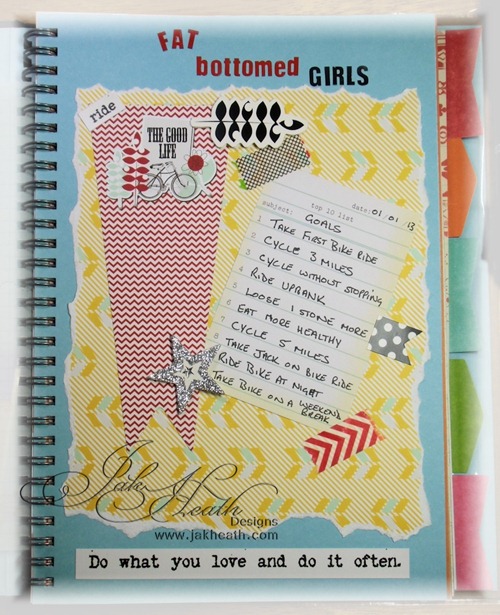 FAT
bottomed GIRLS
ride
THE GOOD
LIFE
date: 01/01 13
subject: top 10 list
GOALS
1 TAKE FIRST BIKE RIDE
2 CYCLE 3 MILES
3 CYCLE WITHOUT STOPPING
4 RIDE UPBANK
5 LOOSE 1 STONE MORE
6 EAT MORE HEALTHY
7 CYCLE 5 MILES
8 TAKE JACK ON BIKE RIDE
RIDE BIKE AT NIGHT
TAKE BIKE ON A WEEKEND
BREAK
Jak Heath
Designs
www.jakheath.com
Do what you love and do it often.